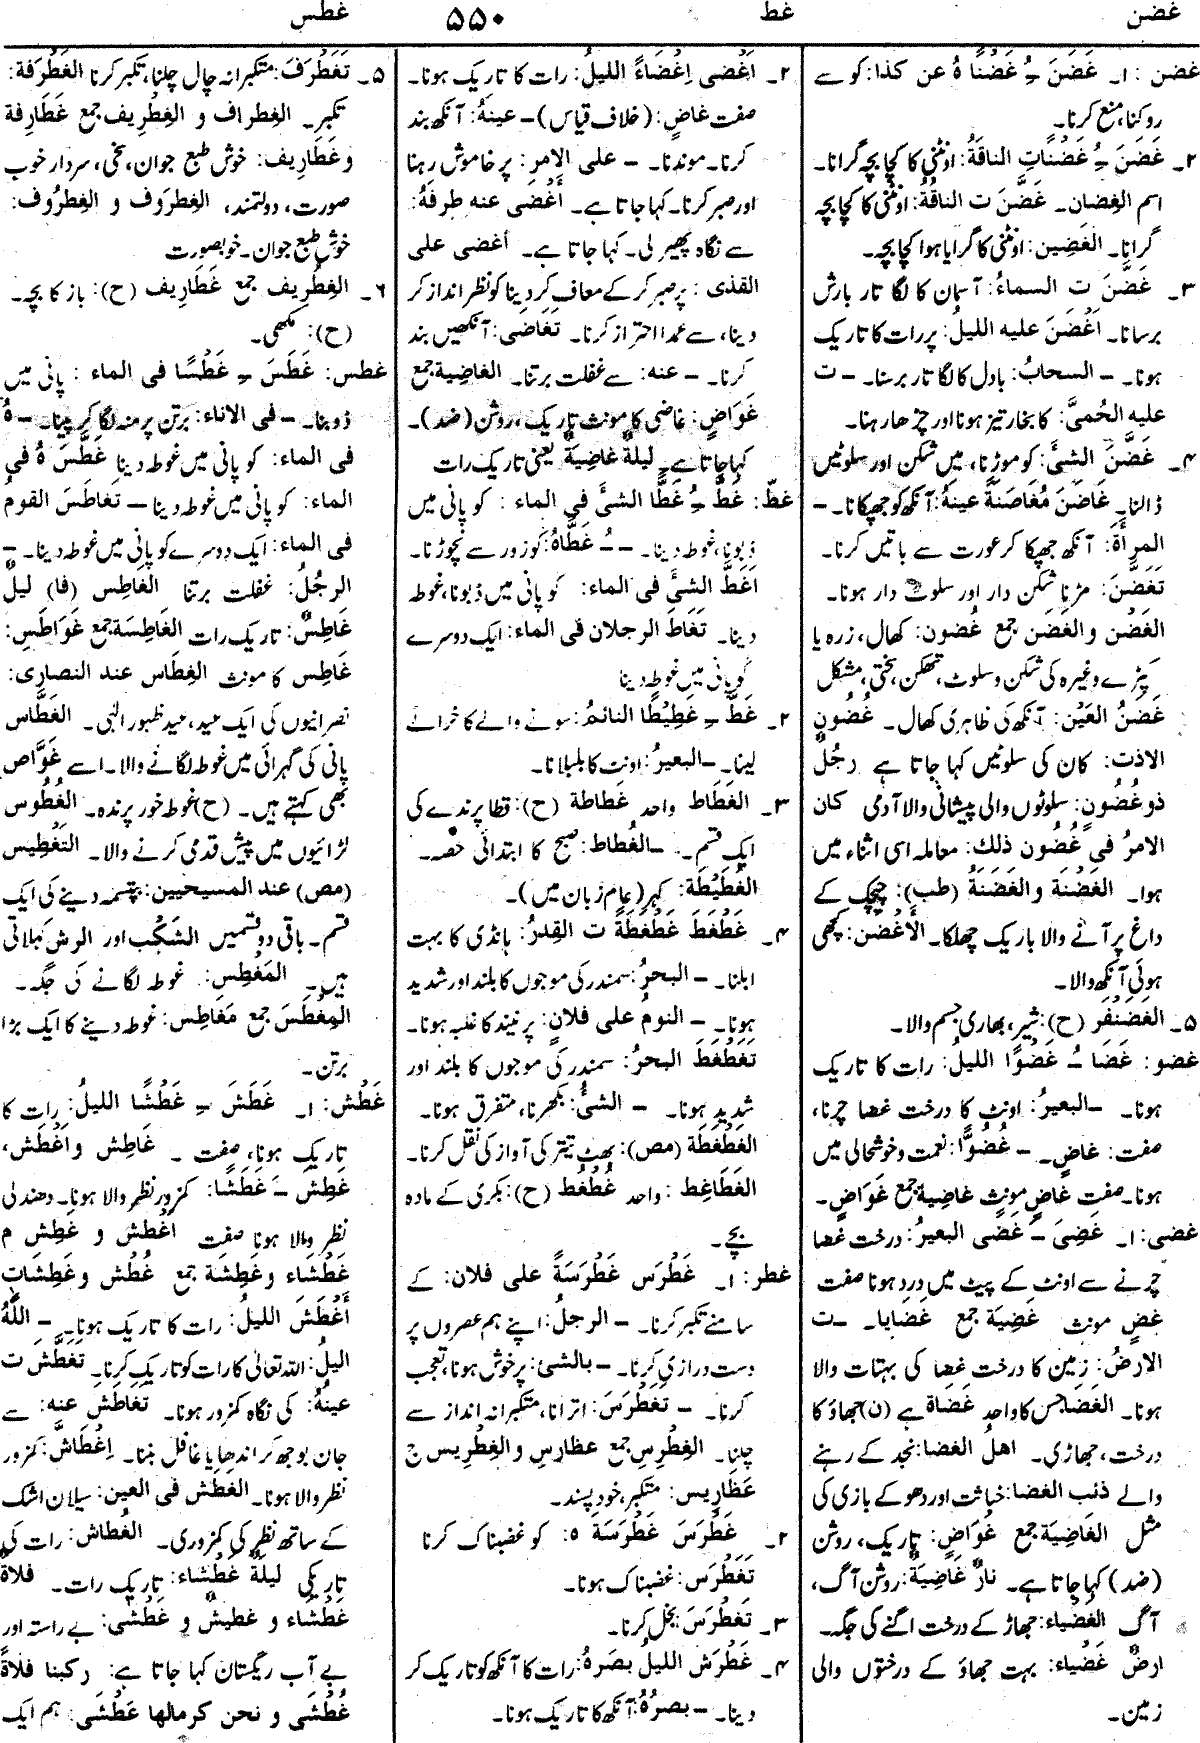 غضن
غط
۵۵۰
غطس
غضن : ۱۔ غَضَنَ ـُ غَضْنًا ہُ عن کذا: کو سے
روکنا، منع کرنا۔
۲۔ غَضَنَ ـُ غُضْنَاتِ الناقۃُ: اونٹنی کا کچا بچہ گرانا۔
اسم الغِضان۔ غَضَّنَ ت الناقۃُ: اونٹنی کا کچا بچہ
گرانا۔ الغَضِین: اونٹنی کا گرایا ہوا کچا بچہ۔
۳۔ غَضَّنَ ت السماءُ: آسمان کا لگا تار بارش
برسانا۔ اَغْضَنَ علیه اللیلُ: پر رات کا تاریک
ہونا۔ – السحابُ: بادل کا لگا تار برسنا۔ – ت
علیه الحُمیَّ: کا بخار تیز ہونا اور چڑھا رہنا۔
۴۔ غَضَّنَ الشیَٔ: کو موڑنا، میں شکن اور سلوٹیں
ڈالنا۔ غَاضَنَ مُغَاضَنَةً عینَهُ: آنکھ کو جھپکانا۔ –
المرأةَ: آنکھ جھپکا کر عورت سے باتیں کرنا۔
تَغَضَّنَ: مڑنا شکن دار اور سلوٹ دار ہونا۔
الغَضْن والغَضَن جمع غُضون: کھال، زرہ یا
کپڑے وغیرہ کی شکن و سلوٹ، تھکن، سختی، مشکل
غَضَنُ العَیْن: آنکھ کی ظاہری کھال۔ غُضُونِ
الاذن: کان کی سلوٹیں کہا جاتا ہے رجُلٌ
ذو غُضُونٍ: سلوٹوں والی پیشانی والا آدمی کان
الامرُ فی غُضُون ذلك: معاملہ اسی اثناء میں
ہوا۔ الغَضْنَة والغَضَنَةُ (طب): چیچک کے
داغ پر آنے والا باریک چھلکا۔ الأَغْضَن: کچی
ہوئی آنکھ والا۔
۵۔ الغَضَنْفَر (ح): شیر، بھاری جسم والا۔
غضو : غَضَا ـُ غَضْوًا اللیلُ: رات کا تاریک
ہونا۔ –البعیرُ: اونٹ کا درخت غضا چرنا،
صفت: غاضٍ۔ – غُضُوًّا: نعمت و خوشحالی میں
ہونا۔ صفت غاضٍ مونث غاضیة جمع غَوَاضٍ۔
غضی: ۱۔ غَضِیَ ـَ غَضًی البعیرُ: درخت غضا
چرنے سے اونٹ کے پیٹ میں درد ہونا صفت
غضٍ مونث غَضِیَة جمع غَضَایا۔ –ت
الارضُ: زمین کا درخت غضا کی بہتات والا
ہونا۔ الغَضَا جس کا واحد غَضَاة ہے (ن) جھاؤ کا
درخت، جھاڑی۔ اهلُ الغضا: نجد کے رہنے
والے ذئب الغضا: خباثت اور دھوکے بازی کی
مثل الغَاضِیَة جمع غَوَاضٍ: تاریک، روشن
(ضد) کہا جاتا ہے۔ نارٌ غَاضِیَةٌ: روشن آگ،
آگ الغَضْیاء: جھاڑ کے درخت اگنے کی جگہ۔
ارضٌ غَضْیاء: بہت جھاؤ کے درختوں والی
زمین۔
۲۔ اَغْضی اِغْضَاءً اللیلُ: رات کا تاریک ہونا۔
صفت غاضٍ: (خلاف قیاس) – عینهُ: آنکھ بند
کرنا۔ موندنا۔ – علی الامر: پر خاموش رہنا
اور صبر کرنا۔ کہا جاتا ہے۔ أَغْضی عنه طرفهُ:
سے نگاہ پھیر لی۔ کہا جاتا ہے۔ أغضی علی
القذی: پر صبر کر کے معاف کر دینا کو نظر انداز کر
دینا، سے عمدا احتراز کرنا۔ تَغَاضی: آنکھیں بند
کرنا۔ – عنه: سے غفلت برتنا۔ الغاضِیة جمع
غَوَاضٍ: غاضی کا مونث تاریک، روشن (ضد)۔
کہا جاتا ہے۔ لیلةٌ غاضِیَةٌ یعنی تاریک رات
غطّ: غَطَّ ـُ غَطًّا الشیَٔ فی الماء : کو پانی میں
ڈبونا، غوطہ دینا۔ –ـُ غَطَّاهُ: کو زور سے نچوڑنا۔
اَغَطَّ الشیَٔ فی الماء: کو پانی میں ڈبونا، غوطہ
دینا۔ تَغَاطَّ الرجلان فی الماء: ایک دوسرے
کو پانی میں غوطہ دینا
۲۔ غَطَّ ـِ غَطِیْطًا النائمُ: سونے والے کا خراٹے
لینا۔ –البعیرُ: اونٹ کا بلبلانا۔
۳۔ الغَطَاط واحد غَطاطة (ح): قطا پرندے کی
ایک قسم۔ –الغُطاط: صبح کا ابتدائی حصّہ۔
الغُطَیْطَة: کہر (عام زبان میں)۔
۴۔ غَطْغَطَ غَطْغَطَةً ت القِدرُ: ہانڈی کا بہت
ابلنا۔ – البحرُ: سمندر کی موجوں کا بلند اور شدید
ہونا۔ – النومُ علی فلان: پر نیند کا غلبہ ہونا۔
تَغَطْغَطَ البحرُ: سمندر کی موجوں کا بلند اور
شدید ہونا۔ – الشیُٔ: بکھرنا، متفرق ہونا۔
الغَطْغَطَة (مص): بھٹ تیتر کی آواز کی نقل کرنا۔
الغَطَاغِط : واحد غُطْغُط (ح): بکری کے مادہ
بچے۔
غطر: ۱۔ غَطْرَس غَطْرَسَةً علی فلان: کے
سامنے تکبر کرنا۔ – الرجلُ: اپنے ہم عصروں پر
دست درازی کرنا۔ – بالشیٔ: پر خوش ہونا، تعجب
کرنا۔ – تَغَطْرَسَ: اترانا، متکبرانہ انداز سے
چلنا۔ الغِطْرِس جمع غطارس والغِطْرِیس ج
غَطَارِیس: متکبر، خود پسند۔
۲۔ غَطْرَسَ غَطْرَسَة ہ: کو غضبناک کرنا
تَغَطْرَس: غضبناک ہونا۔
۳۔ تَغَطْرَسَ: بخل کرنا۔
۴۔ غَطْرَش اللیلُ بصَرهُ: رات کا آنکھ کو تاریک کر
دینا۔ – بصرُهُ: آنکھ کا تاریک ہونا۔
۵۔ تَغَطْرَفَ: متکبرانہ چال چلنا، تکبر کرنا الغَطْرَفة:
تکبر۔ الغِطراف و الغِطرِیف جمع غَطَارِفة
و غَطَارِیف: خوش طبع جوان، سخی، سردار خوب
صورت، دولتمند، الغِطرَوف و الغِطْرُوف:
خوش طبع جوان۔ خوبصورت
۶۔ الغِطْرِیف جمع غَطَارِیف (ح): باز کا بچہ۔
(ح): مکھی۔
غطس: غَطَسَ ـِ غَطْسًا فی الماء : پانی میں
ڈوبنا۔ – فی الاناء: برتن پر منہ لگا کر پینا۔ – ہُ
فی الماء: کو پانی میں غوطہ دینا غَطَّسَ ہُ فی
الماء: کو پانی میں غوطہ دینا – تَغاطَسَ القومُ
فی الماء: ایک دوسرے کو پانی میں غوطہ دینا۔ –
الرجُلُ: غفلت برتنا الغاطِس (فا) لیلٌ
غَاطِسٌ: تاریک رات الغَاطِسَة جمع غَوَاطِس:
غَاطِس کا مونث الغِطَاس عند النصاری:
نصرانیوں کی ایک عید، عید ظہور الٰہی۔ الغَطَّاس
پانی کی گہرائی میں غوطہ لگانے والا۔ اسے غَوَّاص
بھی کہتے ہیں۔ (ح) غوطہ خور پرندہ۔ الغُطُوس
لڑائیوں میں پیش قدمی کرنے والا۔ التَغْطِیس
(مص) عند المسیحیین: بپتسمہ دینے کی ایک
قسم۔ باقی دو قسمیں السَّكْب اور الرش کہلاتی
ہیں۔ المَغْطِس: غوطہ لگانے کی جگہ۔
المِغْطَس جمع مَغَاطِس: غوطہ دینے کا ایک بڑا
برتن۔
غَطْش: ۱۔ غَطَشَ ـِ غَطْشًا اللیلُ: رات کا
تاریک ہونا، صفت ۔ غاطِش واَغْطَش،
غَطِش ـَ غَطَشًا: کمزور نظر والا ہونا۔ دھندلی
نظر والا ہونا صفت اَغْطش و غَطِش م
غَطْشَاء و غَطِشَة جمع غُطْش و غَطِشَات
أَغْطَشَ اللیلُ: رات کا تاریک ہونا۔ – اللّٰهُ
الیلُ: اللہ تعالیٰ کا رات کو تاریک کرنا۔ تَغَطَّشَ ت
عینُهُ: کی نگاہ کمزور ہونا۔ تغاطَشَ عنه: سے
جان بوجھ کر اندھا یا غافل بننا۔ اِغْطَاشَّ: کمزور
نظر والا ہونا۔ الغَطَش فی العین: سیلان اشک
کے ساتھ نظر کی کمزوری۔ الغُطاش: رات کی
تاریکی لیلةٌ غَطْشاء: تاریک رات۔ فلاةٌ
غَطْشاء و غَطیشٌ و غَطْشی: بے راستہ اور
بے آب ریگستان کہا جاتا ہے: رکبنا فلاةً
غَطْشی و نحن کرمالها غَطْشی: ہم ایک